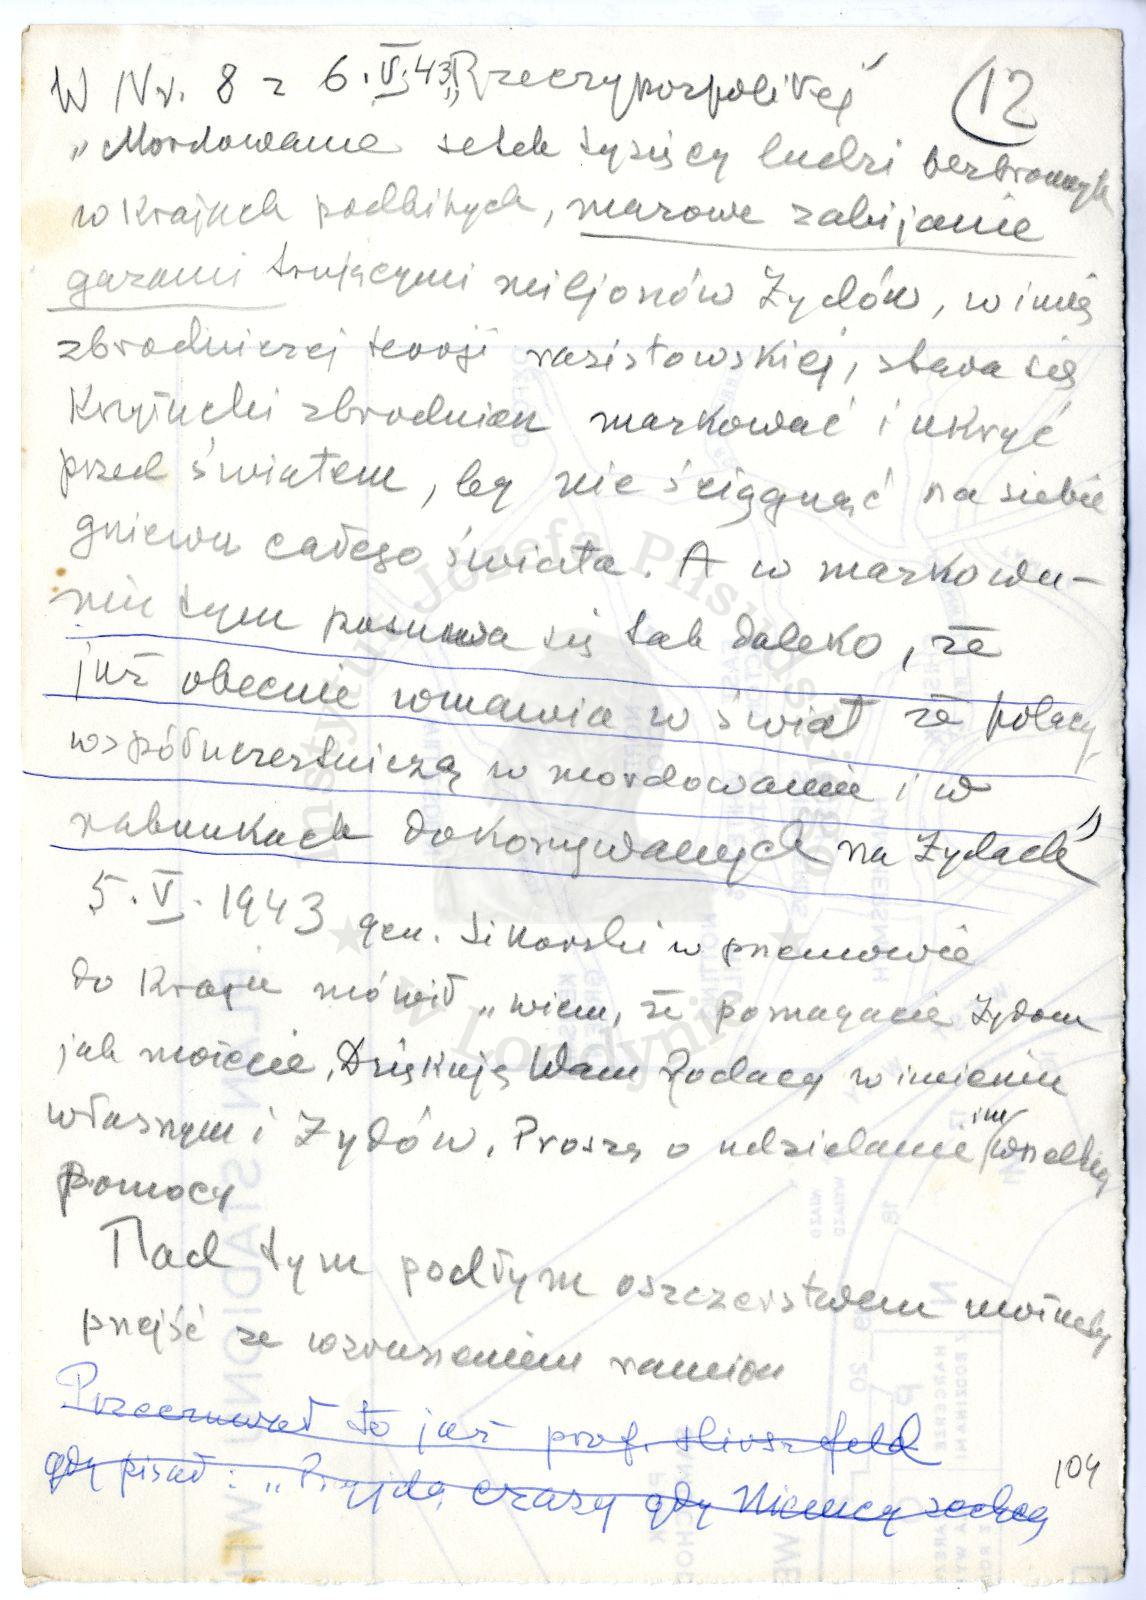 (12
W Nr. 8 z 6.V.43 „Rzeczypospolitej"
„Mordowanie setek tysięcy ludzi bezbronnych
w krajach podbitych, masowe zabijanie
gazami trującymi miljonów Żydów, w imię
zbrodniczej teorji rasistowskiej, stara się
zbrodnien markować i ukryć
przed światem, by nie ściągnąć na siebie
gniewu całego świata. A w markowa-
niu tym posuwa się tak daleko, że
już obecnie wmawia w świat że polacy
współuczestniczą w mordowaniu i w
rabunkach dokonywanych na Żydach"
5.V.1943 gen. Sikorski w przemowie
do Kraju mówił „wiem, że pomagacie Żydom
jak możecie, Dziękuję Wam Rodacy w imieniu
własnym i Żydów. Proszę o udzielanie im wszelkiej
pomocy
Nad tym podłym oszczerstwem możnaby
przejść ze wzruszeniem ramion
Przeczuwał to już prof. Hirszfeld
gdy pisał: „Przyjdą czasy gdy Niemcy zechcą
104
Instytut Józefa Piłsudskiego
w Londynie